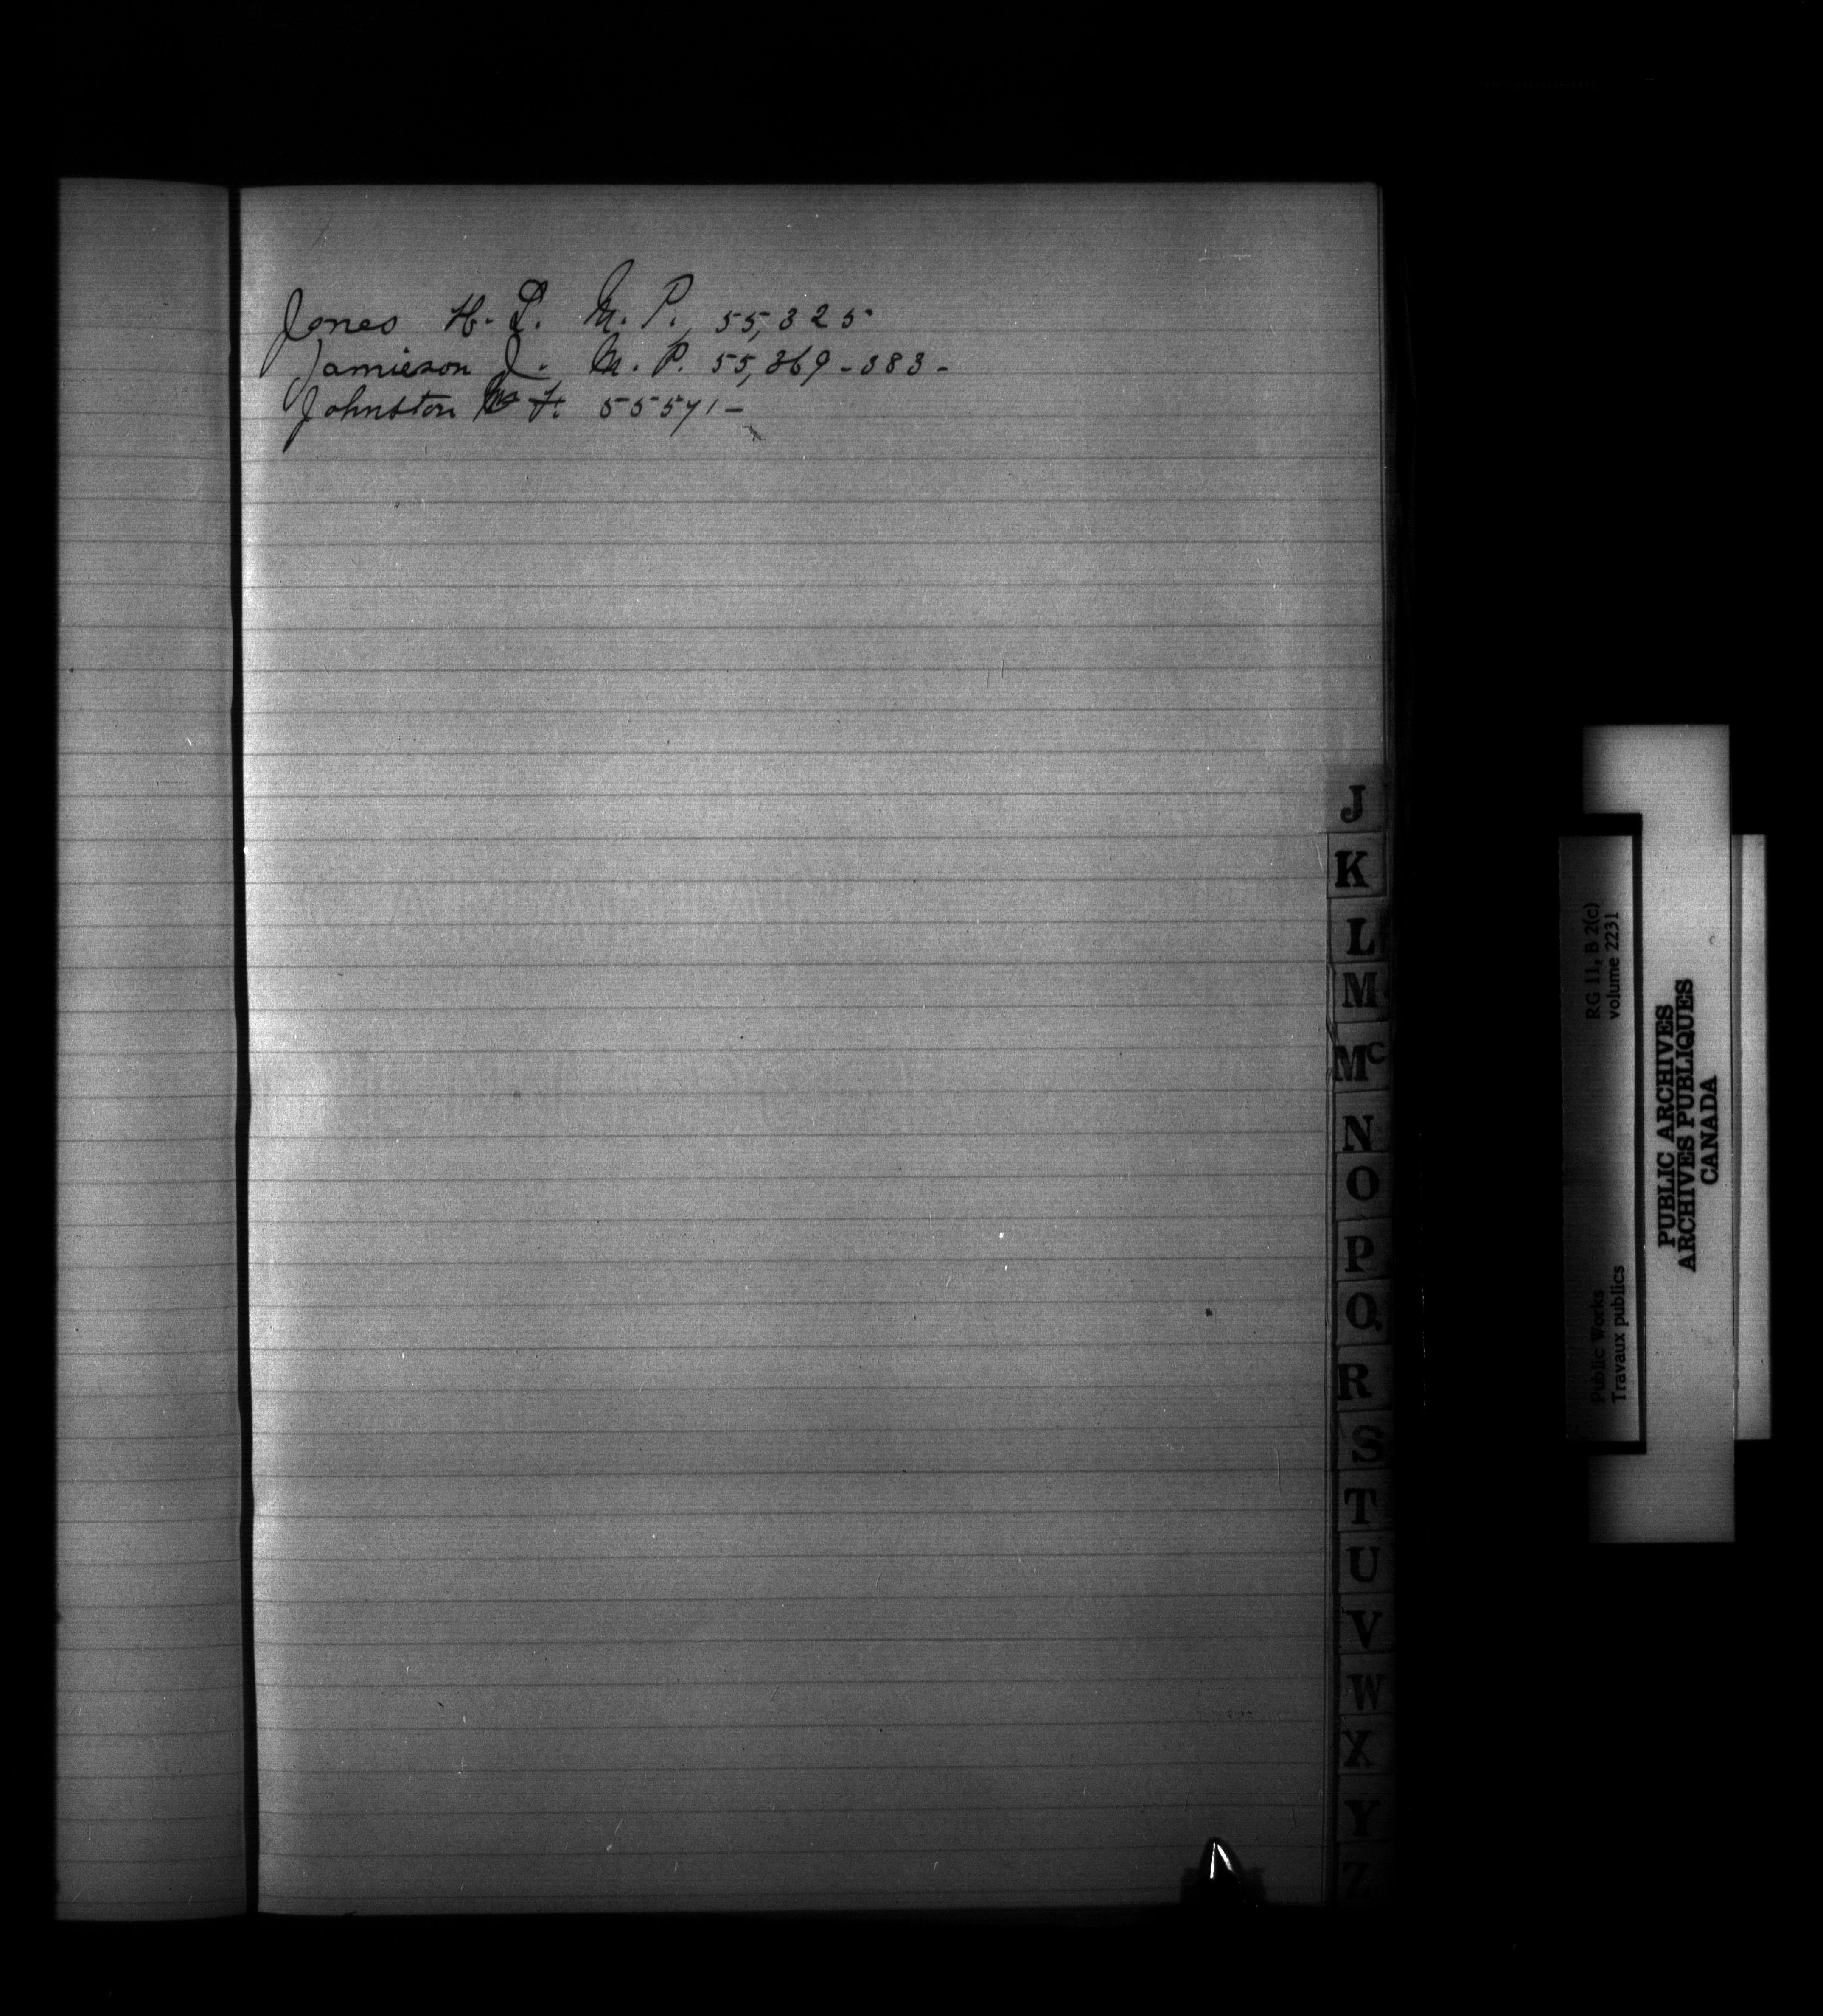 Jones H. L. M. P. 55,325
Jamieson J. M. P. 55,369-383-
Johnston F. 55571-
J
K
L
M
Mc
N
O
P
Q
R
S
T
U
V
W
X
Y
Z
RG 11, B 2(c)
volume 2231
Public Works
Travaux publics
PUBLIC ARCHIVES
ARCHIVES PUBLIQUES
CANADA